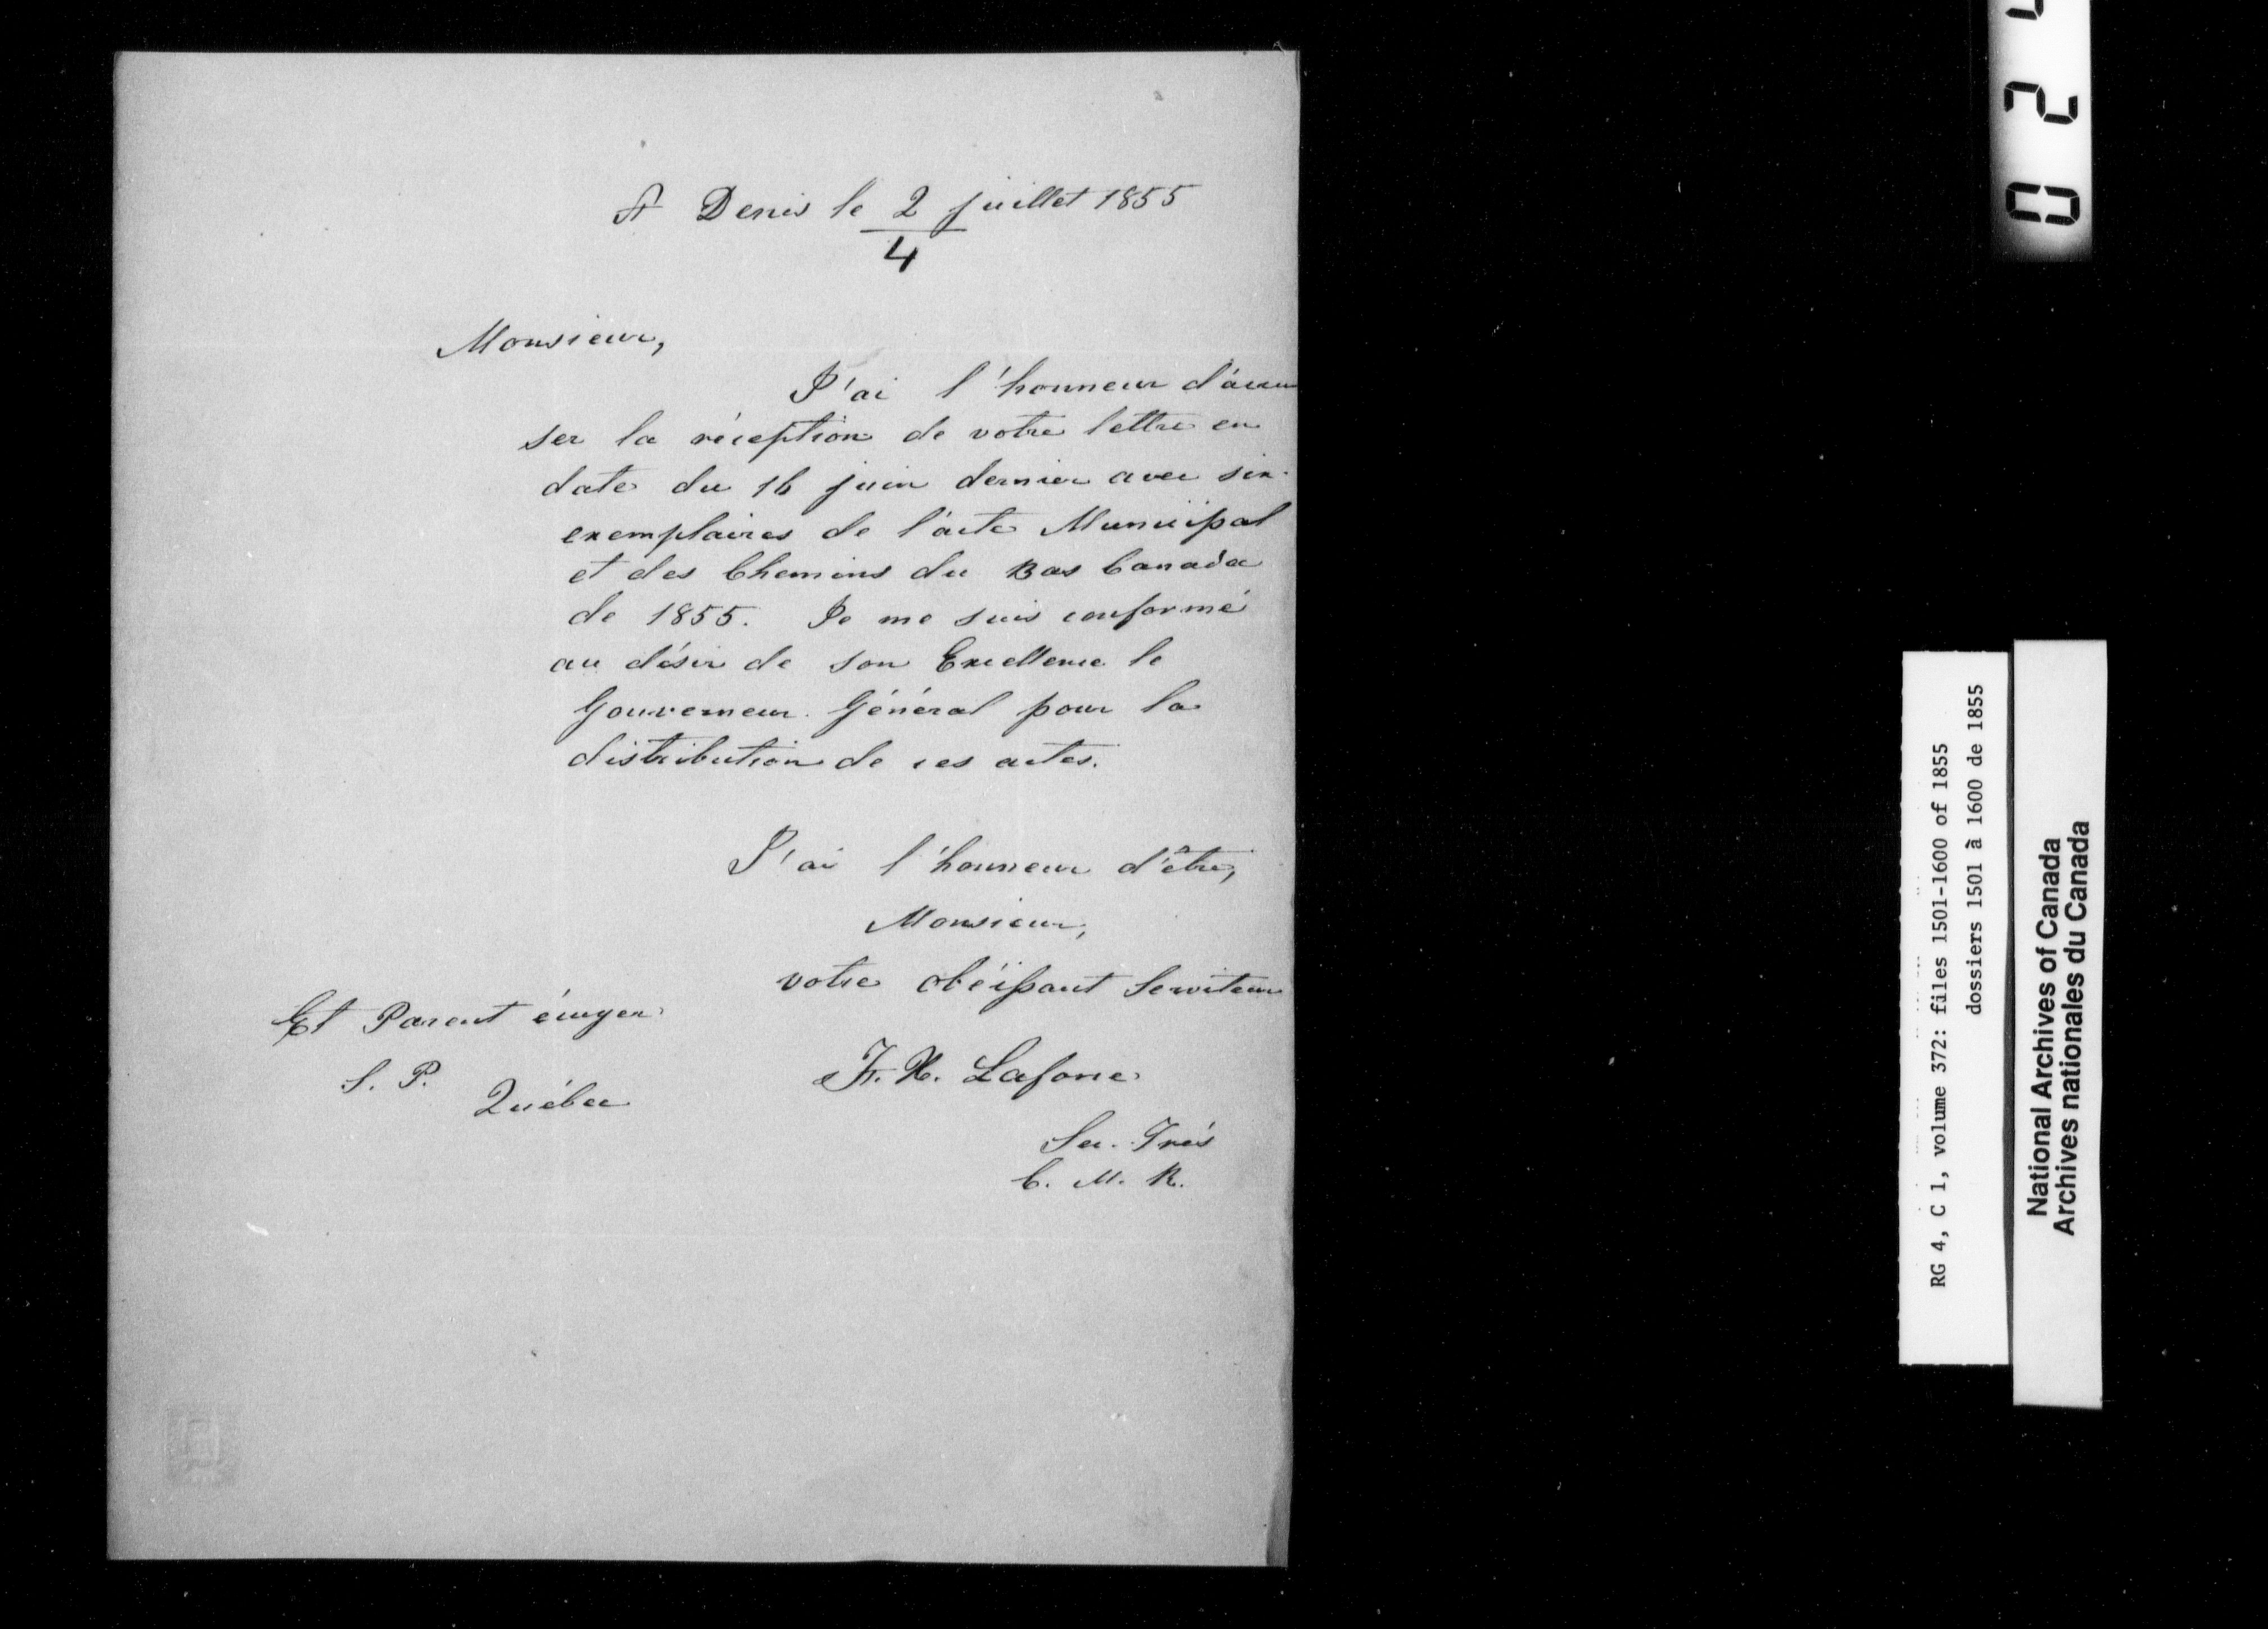 St Denis le 2 juillet 1855
4
Monsieur,
J'ai l'honneur d'accu
ser la réception de votre lettre en
date du 16 juin dernier avec six
exemplaires de l'acte Municipal
et des Chemins du Bas Canada
de 1855. Je me suis conformé
au désir de son Excellence le
Gouverneur Général pour la
distribution de ces actes.
J'ai l'honneur d'être,
Monsieur,
votre obéissant Serviteur
Et Parent écuyer
S. P.
Québec
F. X.
Sec. Trés
C. M. R.
024
RG 4, C 1, volume 372: files 1501-1600 of 1855
dossiers 1501 à 1600 de 1855
National Archives of Canada
Archives nationales du Canada